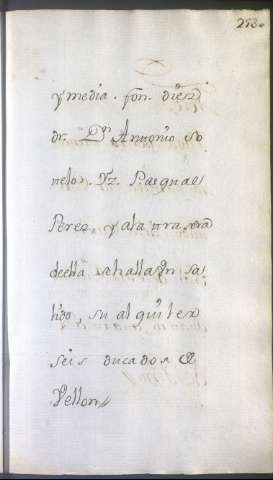 258.
y media. fon. diez
dr. Dn Antonio So
telo. Yz. Pasqual
Perez, y ala trasera
deella se halla Un sa
lido, su alquiler
seis ducados de
Vellon